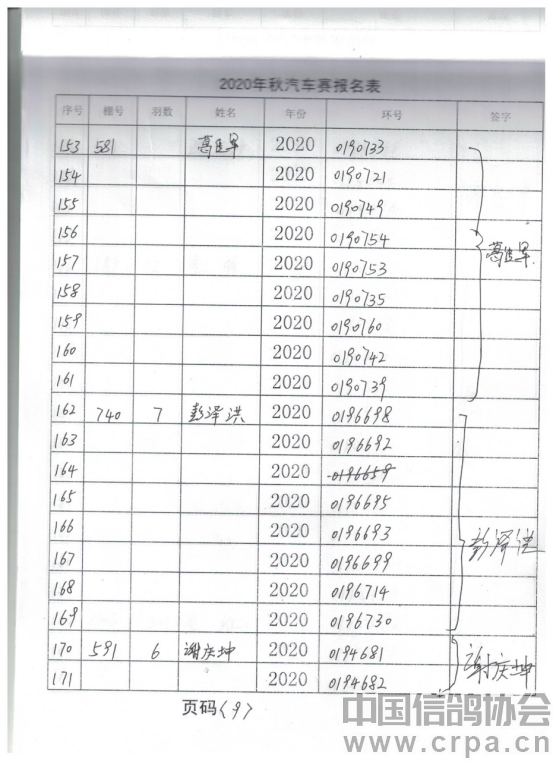 2020年秋汽车赛报名表
序号 棚号 羽数 姓名 年份 环号 签字
153 581 葛 早 2020 0190733
154 2020 0190721
155 2020 0190749
156 2020 0190754
157 2020 0190753 葛 早
158 2020 0190735
159 2020 0190760
160 2020 0190742
161 2020 0190739
162 740 7 彭泽洪 2020 0196698
163 2020 0196692
164 2020 0196659
165 2020 0196695
166 2020 0196693
167 2020 0196699 彭泽洪
168 2020 0196714
169 2020 0196730
170 591 6 谢庆坤 2020 0194681
171 2020 0194682 谢庆坤
页码(9)
中国信鸽协会
www.crpa.cn